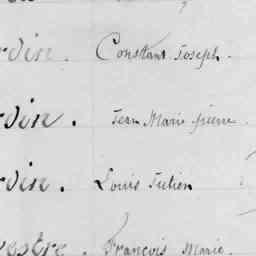 rdin. Constant Joseph.
rdin. Jean Marie pierre.
rdin. Louis Julien
vestre. François Marie.